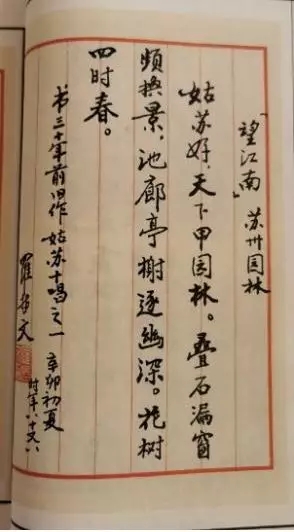 「望江南」苏州园林
姑苏好,天下甲园林。叠石漏窗
频换景,池廊亭榭逐幽深。花树
四时春。
书三十年前旧作姑苏十唱之一 辛卯初夏
罗哲文
时年八十又八